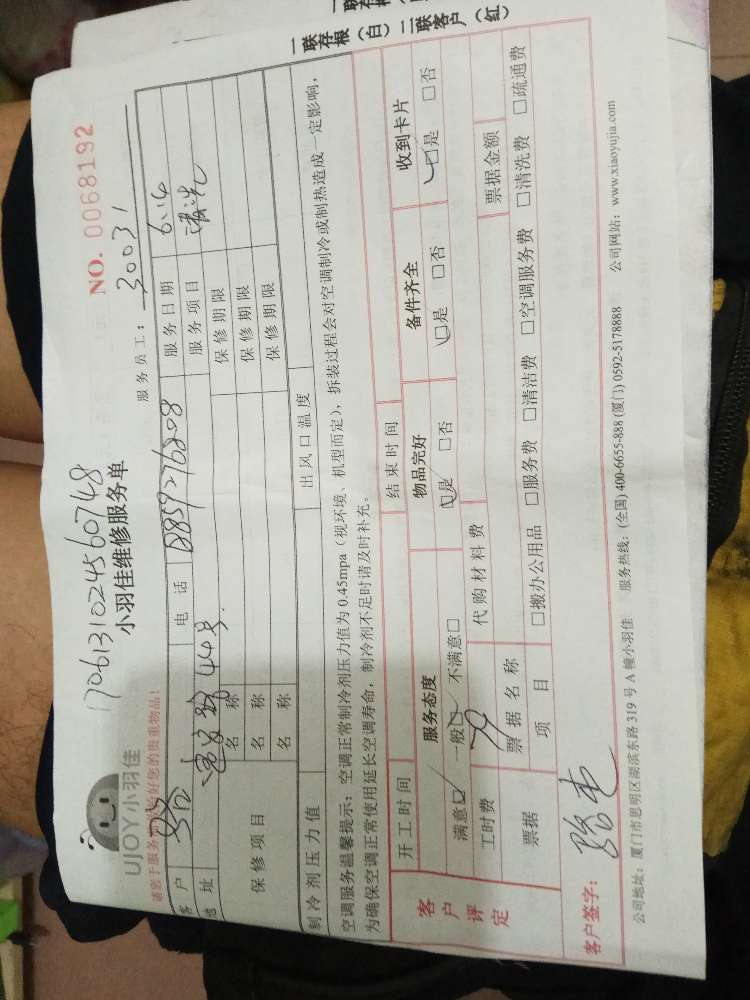 1706131024560748
UJOY小羽佳
小羽佳维修服务单
NO. 0068192
请您于服务 好您的贵重物品!
服务员工: 30031
客户 电话 服务日期 6.14
地址 44号 服务项目 清洗
保修项目 名称 保修期限
名称 保修期限
名称 保修期限
制冷剂压力值 出风口温度
空调服务温馨提示: 空调正常制冷剂压力值为 0.45mpa (视环境、机型而定), 拆装过程会对空调制冷或制热造成一定影响,
为确保空调正常使用延长空调寿命, 制冷剂不足时请及时补充。
客户评定 开工时间 结束时间
服务态度 物品完好 备件齐全 收到卡片
满意□ 一般□ 不满意□ □是 □否 □是 □否 □是 □否
工时费 70 代购材料费
票据 票据名称 票据金额
项目 □搬办公用品 □服务费 □清洁费 □空调服务费 □清洗费 □疏通费
客户签字:
公司地址: 厦门市思明区湖滨东路 319 号 A 幢小羽佳 服务热线: (全国) 400-6655-888 (厦门) 0592-5178888 公司网站: www.xiaoyujia.com
一联存根(白) 二联客户(红)